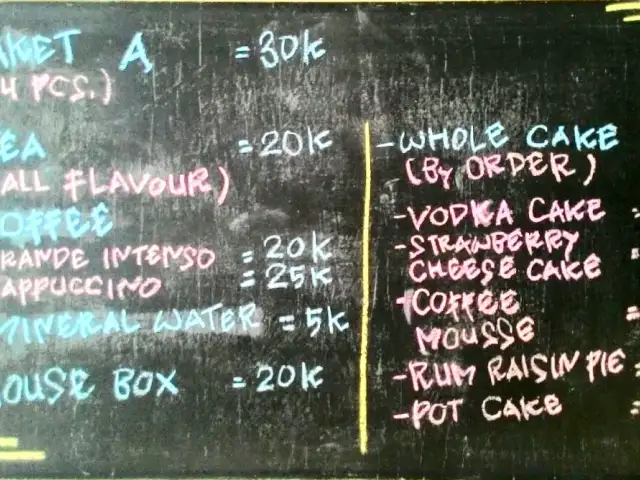 A = 30K
4 PCS.)
= 20K
(ALL FLAVOUR)
OFFEE
RANDE INTENSO = 20K
APPUCCINO = 25K
MINERAL WATER = 5K
OUSE BOX = 20K
- WHOLE CAKE
(By ORDER)
- VODKA CAKE
- STRAWBERRY
CHEESE CAKE
- COFFEE
MOUSSE
- RUM RAISIN PIE =
- POT CAKE